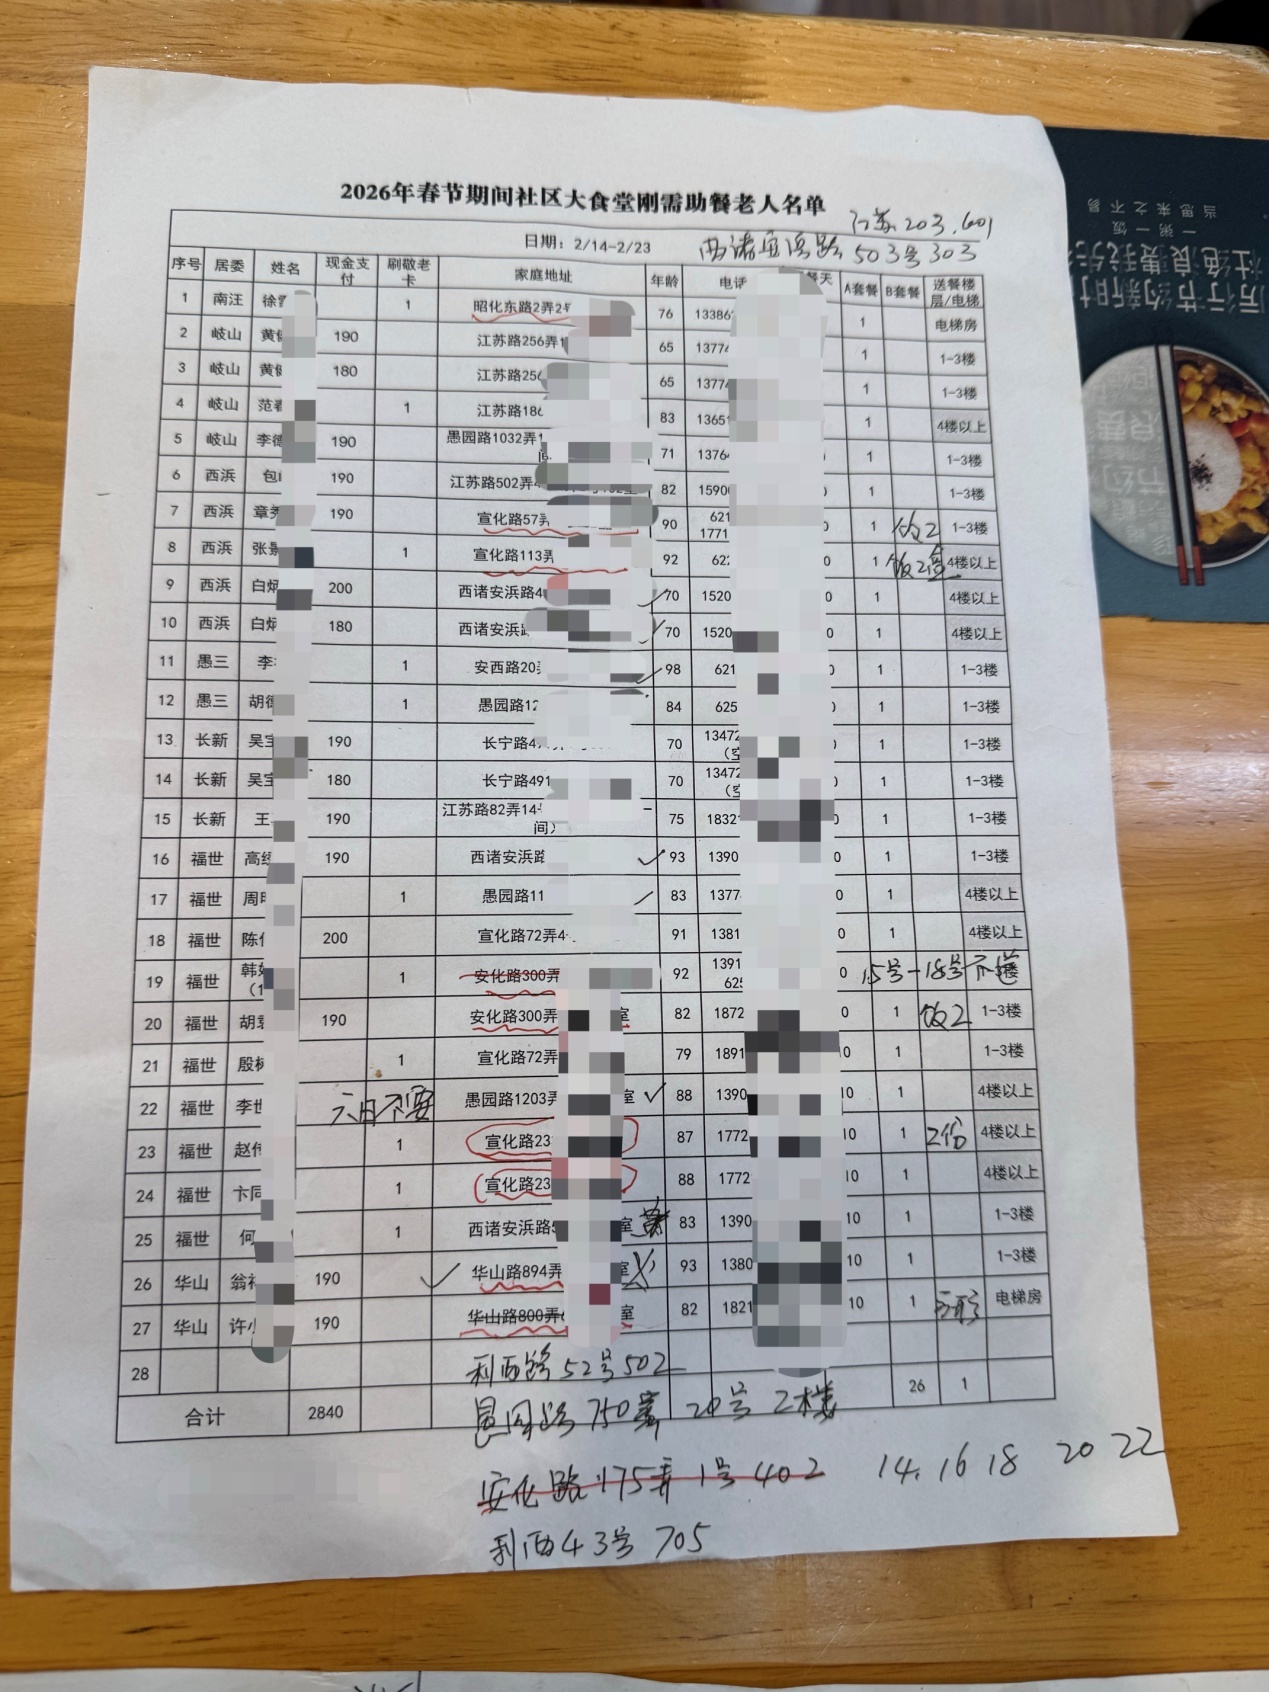 2026年春节期间社区大食堂刚需助餐老人名单
江苏203.601
日期：2/14-2/23
西诸安浜路503号303
序号 居委 姓名 现金支付 刷敬老卡 家庭地址 年龄 电话 餐天 A套餐 B套餐 送餐楼层/电梯
1 南汪 徐 1 昭化东路2弄2号 76 13386 1 电梯房
2 岐山 黄 190 江苏路256弄1 65 1377 1 1-3楼
3 岐山 黄 180 江苏路256 65 1377 1 1-3楼
4 岐山 范 1 江苏路186 83 1365 1 4楼以上
5 岐山 李德 190 愚园路1032弄1 间 71 1376 1 1-3楼
6 西浜 包 190 江苏路502弄4 82 1590 1 1-3楼
7 西浜 章 190 宣化路57弄 90 621 1771 1 饭2 1-3楼
8 西浜 张 1 宣化路113弄 92 622 0 1 饭2盒 4楼以上
9 西浜 白 200 西诸安浜路4 70 1520 0 1 4楼以上
10 西浜 白 180 西诸安浜路 70 1520 0 1 4楼以上
11 愚三 李 1 安西路20弄 98 621 1 1-3楼
12 愚三 胡德 1 愚园路12 84 625 1 1-3楼
13 长新 吴宝 190 长宁路4 70 13472（空 1 1-3楼
14 长新 吴宝 180 长宁路491 70 13472（空 1 1-3楼
15 长新 王 190 江苏路82弄14号 间） 75 1832 0 1 1-3楼
16 福世 高 190 西诸安浜路 93 1390 0 1 1-3楼
17 福世 周 1 愚园路11 83 1377 0 1 4楼以上
18 福世 陈 200 宣化路72弄4 91 1381 0 1 4楼以上
19 福世 韩（1 1 安化路300弄 92 1391 625 0 15号-18号不送
20 福世 胡 190 安化路300弄 室 82 1872 0 1 饭2 1-3楼
21 福世 殷 1 宣化路72弄 79 1891 10 1 1-3楼
22 福世 李世 六日不要 愚园路1203弄 室 88 1390 10 1 4楼以上
23 福世 赵 1 宣化路23 87 1772 10 1 2份 4楼以上
24 福世 卞同 1 宣化路23 88 1772 10 1 4楼以上
25 福世 何 1 西诸安浜路5 室 83 1390 10 1 1-3楼
26 华山 翁 190 华山路894弄 室 93 1380 10 1 1-3楼
27 华山 许小 190 华山路800弄 室 82 1821 10 1 电梯房
28 利西路52号502
合计 2840 26 1
愚园路750弄 20号 2楼
安化路175弄1号402 14.16 18 20 22
利西43号705